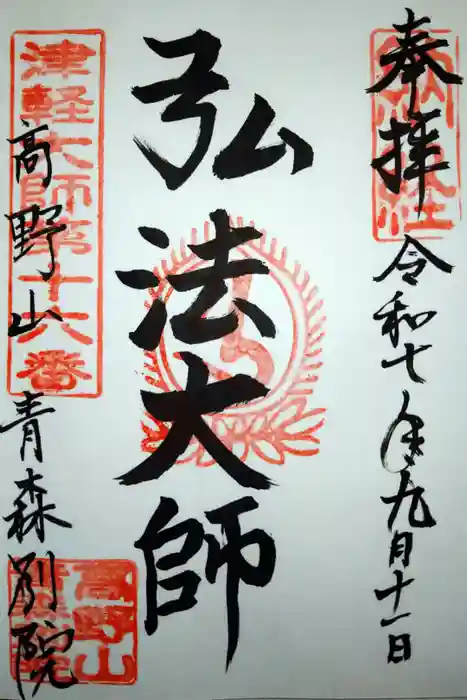 奉拝
令和七年九月十一日
弘法大師
津軽大師第十六番
高野山
青森別院
高野山
青森別院